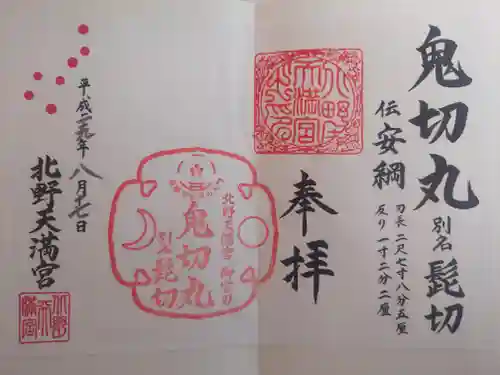 鬼切丸 別名 髭切
伝 安綱
刃長 二尺七寸八分五厘
反り 一寸二分二厘
奉拝
北野天満宮 御守り
鬼切丸
別名 髭切
平成二九年八月十七日
北野天満宮